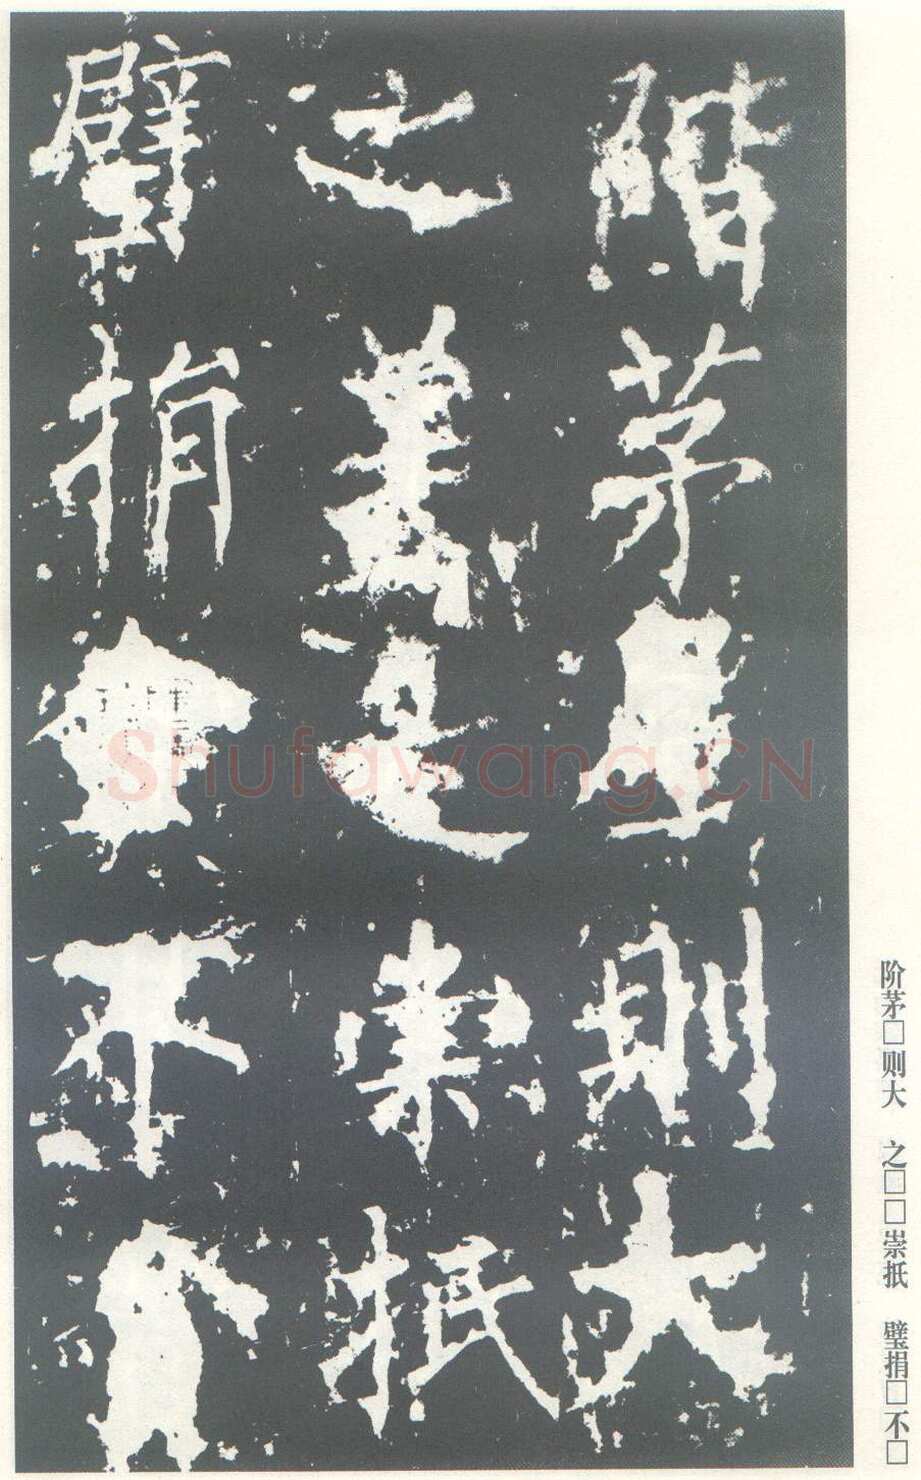 階茅則大
之崇抵
璧捐不
阶茅□则大 之□□崇抵 璧捐□不□
Shufawang.CN